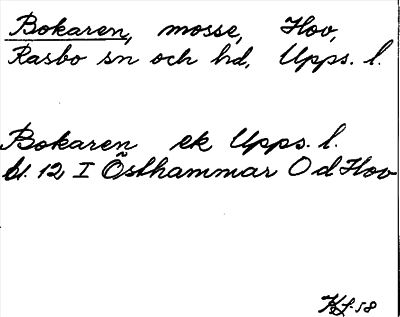 Bokaren, mosse, Hov,
Rasbo sn och hd, Upps. l.
Bokaren ek Upps. l.
bl. 12 I Östhammar Od Hov
KL-58